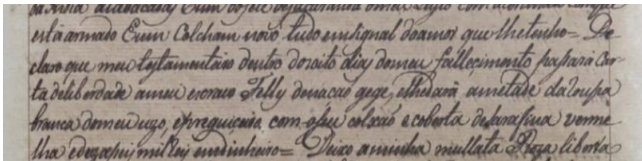 está armado Eum Colcham novo tudo em signal do amor que lhe tenho = De
claro que meu testamentario dentro de oito dias do meu fallecimento passará Car
ta de liberdade a meu escravo Felly de nacão gege, elhe dará ametade da roupa
branca do meu uzo, epreguiçeira com oSeu colxão e coberta de farapua verme
lha e dezaseis mil reis em dinheiro = Deixo aminha mullata Roza liberta